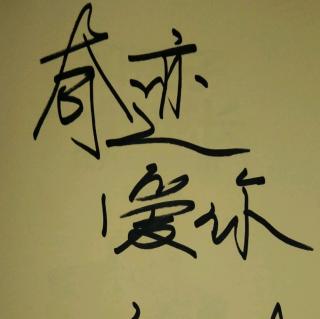 奇迹
爱你